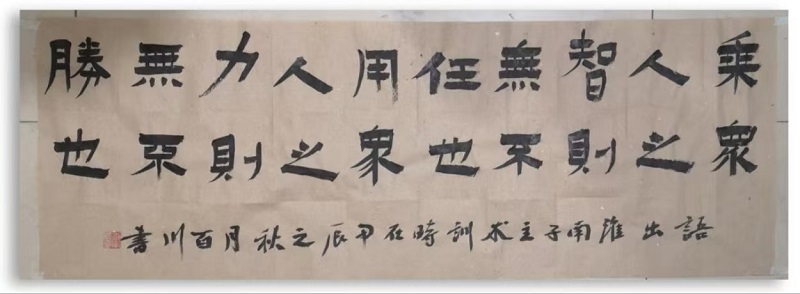 乘衆
人之
智則
無不
任也
用衆
人之
力則
無不
勝也
語出淮南子主术訓時在甲辰之秋月百川書